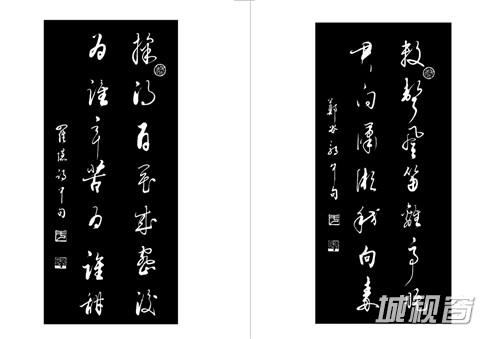 採得百花成蜜後
为誰辛苦为誰甜
羅隱詩句
數聲風笛離亭晚
君向瀟湘我向秦
鄭谷詩句
城视窗